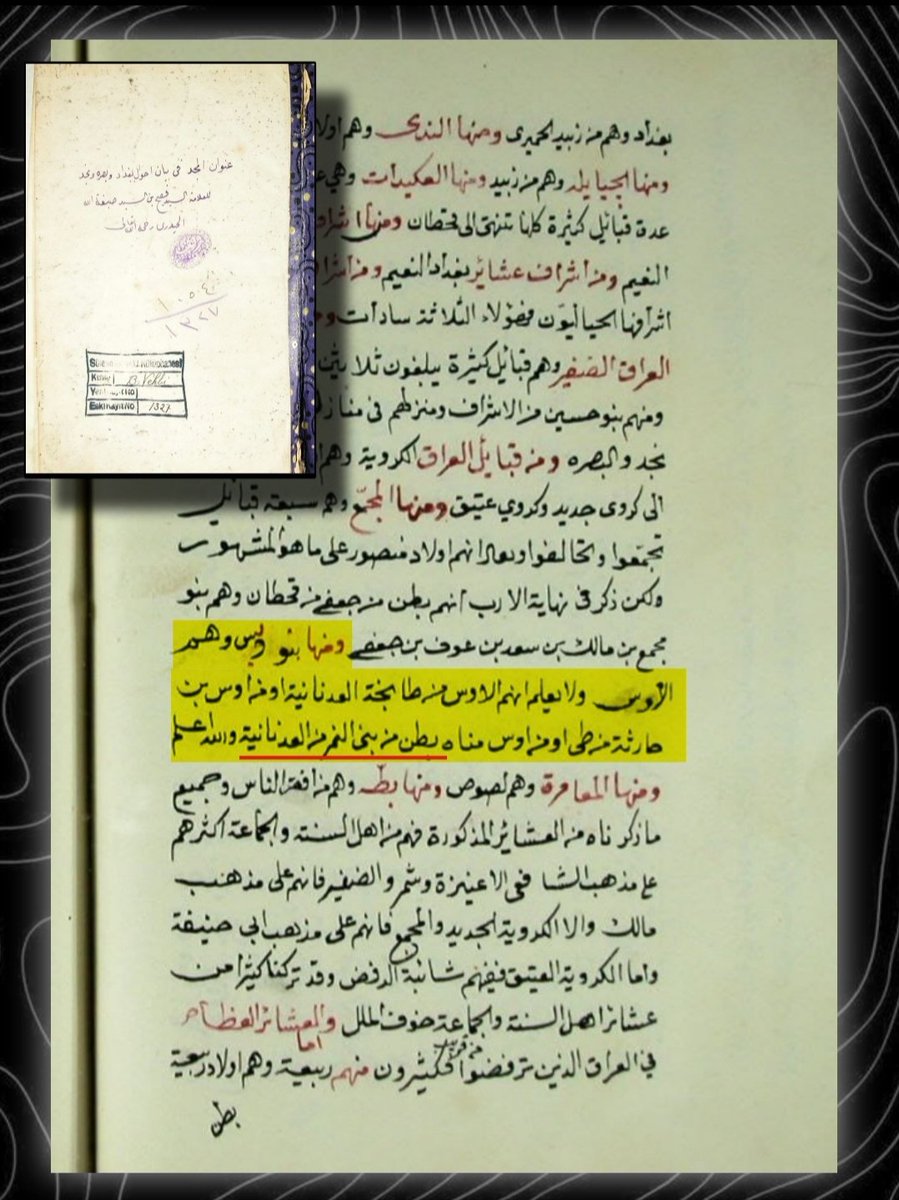 عنوان المجد في بيان احوال بغداد وبصره ونجد
للعلامة السيد فصيح بن السيد صبغة الله
الحيدري رحمه الله تعالى
١٠٥٤
١٣٢٧
B. Vehbi
Eski Kayit No 1327
بغداد وهم من زبيد الحميرى ومنها الندى وهم اولا
ومنها الجبايله وهم من زبيد ومنها العكيدات وهي
عدة قبائل كثيرة كلها تنتهى الى قحطان ومنها اشرا
النعيم ومن اشراف عشائر بغداد النعيم ومن اشرا
اشرافها الحياليون فهؤلاء الثلاثة سادات
العراق الضفير وهم قبائل كثيرة يبلغون ثلاثين
ومنهم بنو حسين من الاشراف ومنزلهم فى
نجد والبصره ومن قبائل العراق الكروية وهم
الى كروى جديد وكروي عتيق ومنها المجمّع وهم سبعة قبائل
تجمّعوا وتحالفوا ويقال انهم اولاد منصور على ما هو المشهور
ولكن ذكر فى نهاية الارب انهم بطن من جعفى من قحطان وهم بنو
مجمع بن مالك بن سعد بن عوف بن جعفى ومنها بنو ويس وهم
الاوس ولا يعلم انهم الاوس من طابخة العدنانية او من اوس بن
حارثة من طى او من اوس مناه بطن من بنى النمر من العدنانية والله اعلم
ومنها المعامرة وهم لصوص ومنها بطّه وهم من افقر الناس وجميع
ما ذكرناه من العشائر المذكورة فهم من اهل السنة والجماعة اكثرهم
على مذهب الشافعى الا عنيزة وشمر والضفير فانهم على مذهب
مالك والا الكروية الجديد والمجمع فانهم على مذهب ابى حنيفة
واما الكروية العتيق ففيهم شائبة الرفض وقد تركنا كثيرا من
عشائر اهل السنة والجماعة خوف الملل واما العشائر العظام
في العراق الذين ترفضوا من قريب فكثيرون منهم ربيعة وهم اولاد ربيعة
بطن